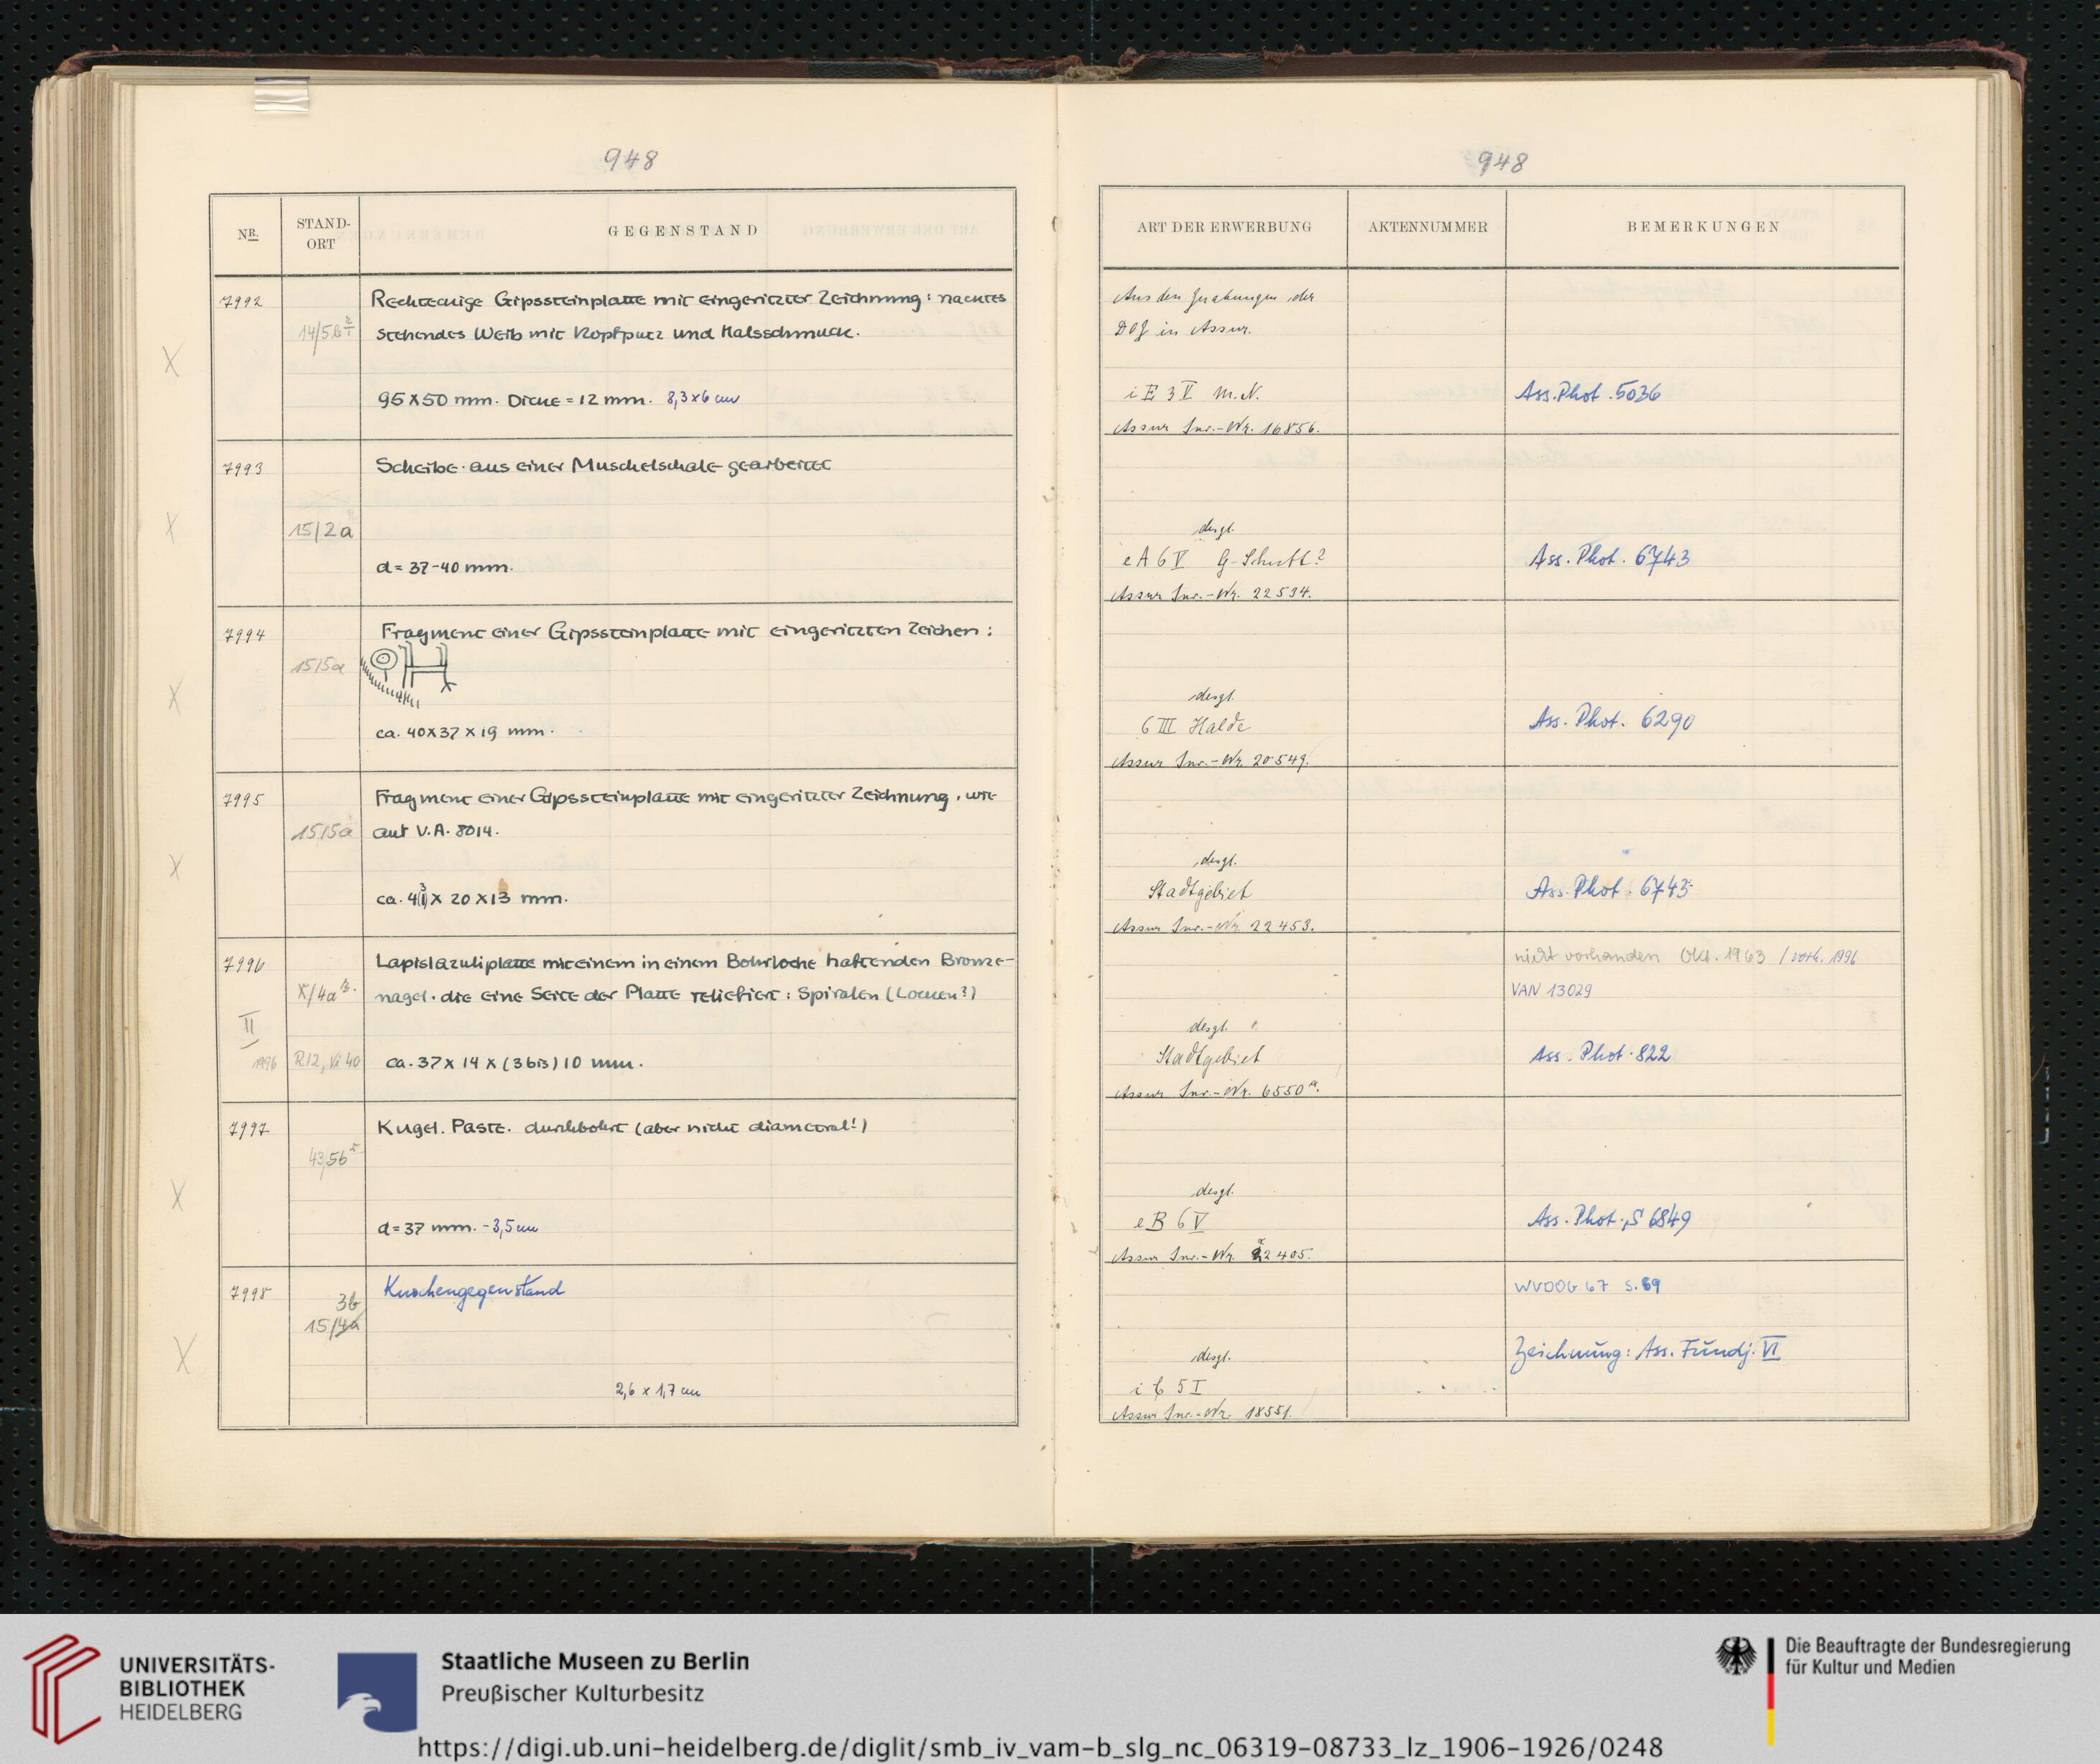 948
NR.
STAND-
ORT
GEGENSTAND
7992
14/5b
Rechteckige Gipssteinplatte mit eingeritzter Zeichnung: nacktes
stehendes Weib mit Kopfputz und Halsschmuck.
95 x 50 mm. Dicke = 12 mm. 8,3 x 6 cm
7993
Scheibe. aus einer Muschelschale gearbeitet
15/2a
d = 37-40 mm.
7994
Fragment einer Gipssteinplatte mit eingeritzten Zeichen:
15/5a
ca. 40 x 37 x 19 mm.
7995
Fragment einer Gipssteinplatte mit eingeritzter Zeichnung, wie
15/5a
auf V.A. 8014.
x 20 x 13 mm.
7996
Lapislazuliplatte mit einem in einem Bohrloche haftenden Bronze-
nagel. die eine Seite der Platte reliefiert: Spiralen (Locken?)
II
1996
R12, Vi 40
ca. 37 x 14 x (3 bis) 10 mm.
7997
Kugel. Paste. durchbohrt (aber nicht diametral!)
d = 37 mm. - 3,5 cm
7998
Knochengegenstand
3b
15/4a
2,6 x 1,7 cm
948
ART DER ERWERBUNG
AKTENNUMMER
BEMERKUNGEN
Aus den Grabungen der
DOG in Assur.
i E 3 V M.N.
Ass. Phot. 5036
Assur Inv.-Nr. 16856.
desgl.
e A 6 V G-Schutt?
Ass. Phot. 6743
Assur Inv.-Nr. 22534.
desgl.
6 III Halde
Ass. Phot. 6290
Assur Inv.-Nr. 20549.
desgl.
Stadtgebiet
Ass. Phot. 6743
Assur Inv.-Nr. 22453.
nicht vorhanden Okt. 1963 / vorh. 1996
VAN 13029
desgl.
Stadtgebiet
Ass. Phot. 822
Assur Inv.-Nr. 6550a.
desgl.
e B 6 V
Ass. Phot. S 6849
Assur Inv.-Nr. 22405.
WVDOG 67 S. 69
Zeichnung: Ass. Fundj. VI
desgl.
5 I
Assur Inv.-Nr. 18551.
UNIVERSITÄTS-
BIBLIOTHEK
HEIDELBERG
Staatliche Museen zu Berlin
Preußischer Kulturbesitz
Die Beauftragte der Bundesregierung
für Kultur und Medien
https://digi.ub.uni-heidelberg.de/diglit/smb_iv_vam-b_slg_nc_06319-08733_lz_1906-1926/0248